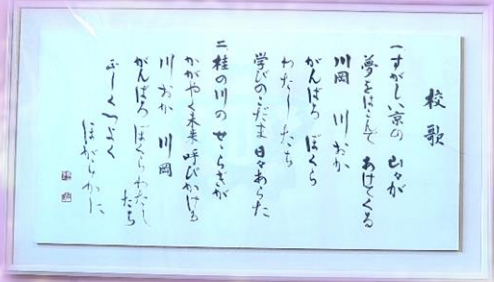 校歌
一すがしい京の 山々が
夢をはこんで あけてくる
川岡 川おか
がんばろ ぼくら
わたしたち
学びのこだま 日々あらた
二桂の川の せゝらぎが
かがやく未来 呼びかける
川おか 川岡
がんばろ ぼくらわたし
たち
正しくつよく
ほがらかに